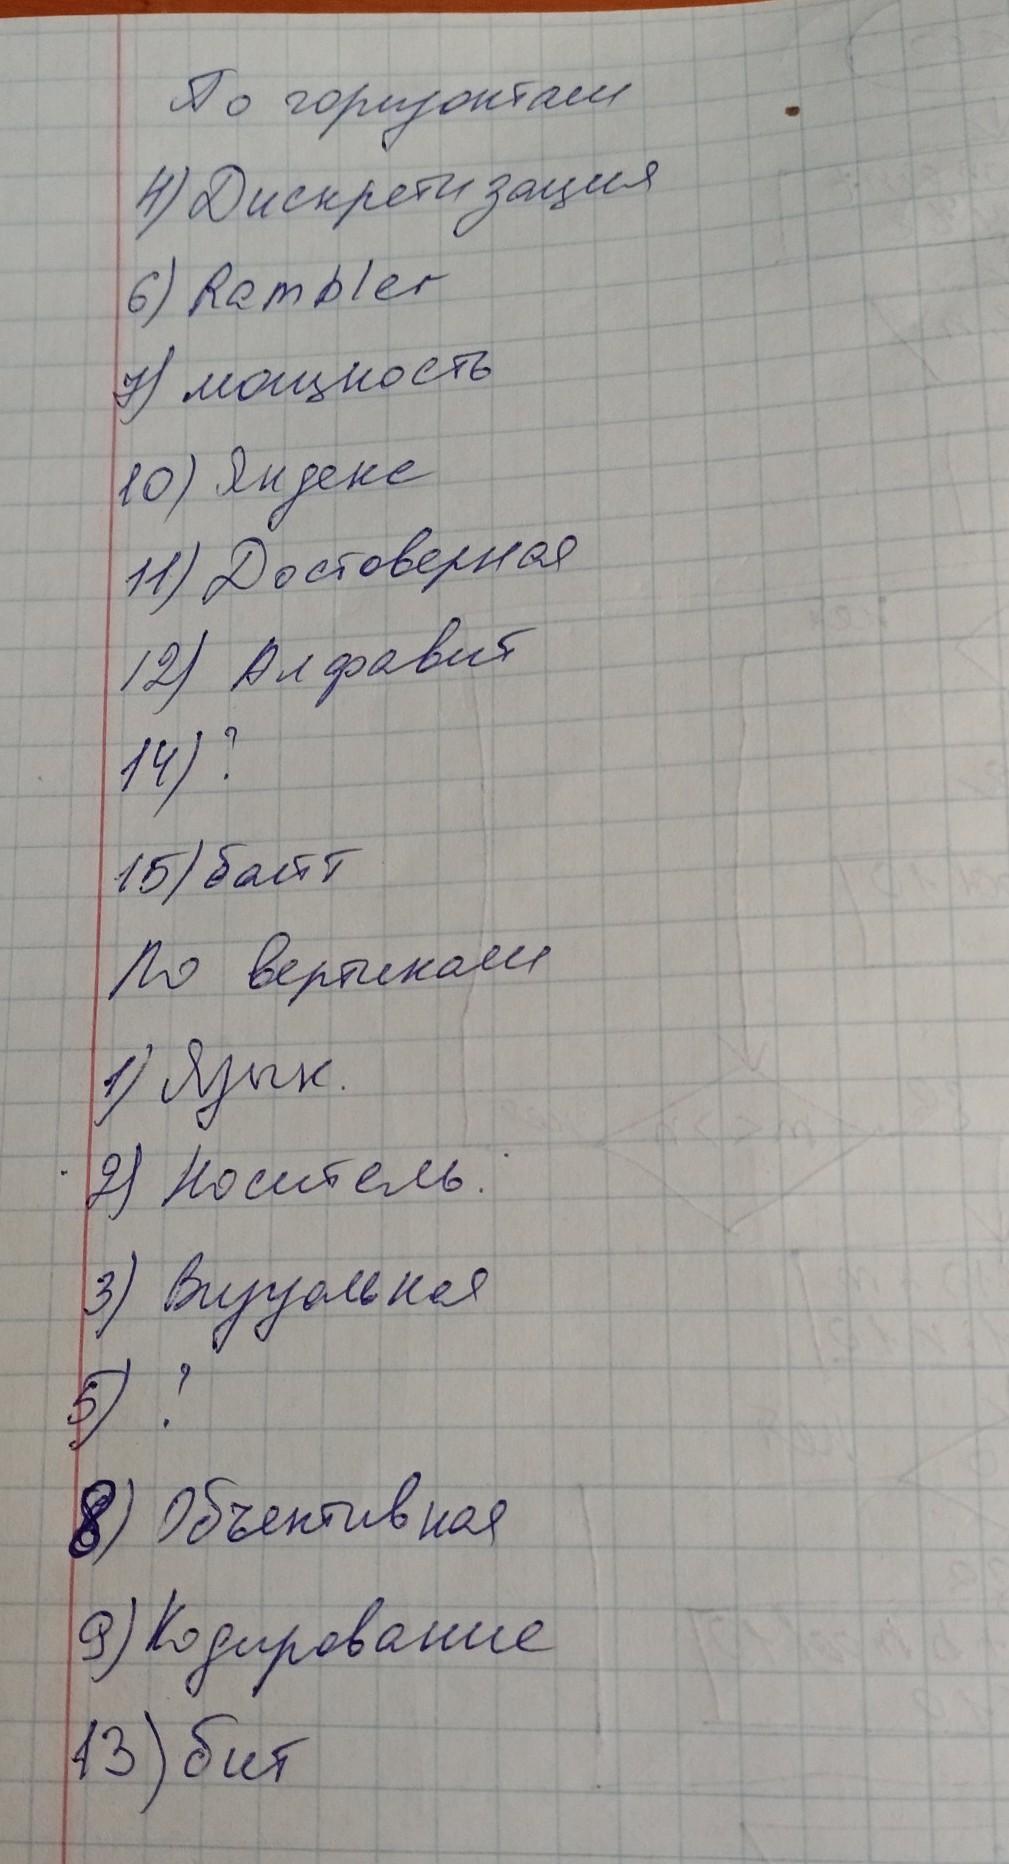 По горизонтали
4) Дискретизация
6) Rambler
7) мощность
10) Яндекс
11) Достоверная
12) Алфавит
14) ?
15) байт
По вертикали
1) Язык.
2) Носитель.
3) Визуальная
5) ?
8) Объективная
9) Кодирование
13) бит